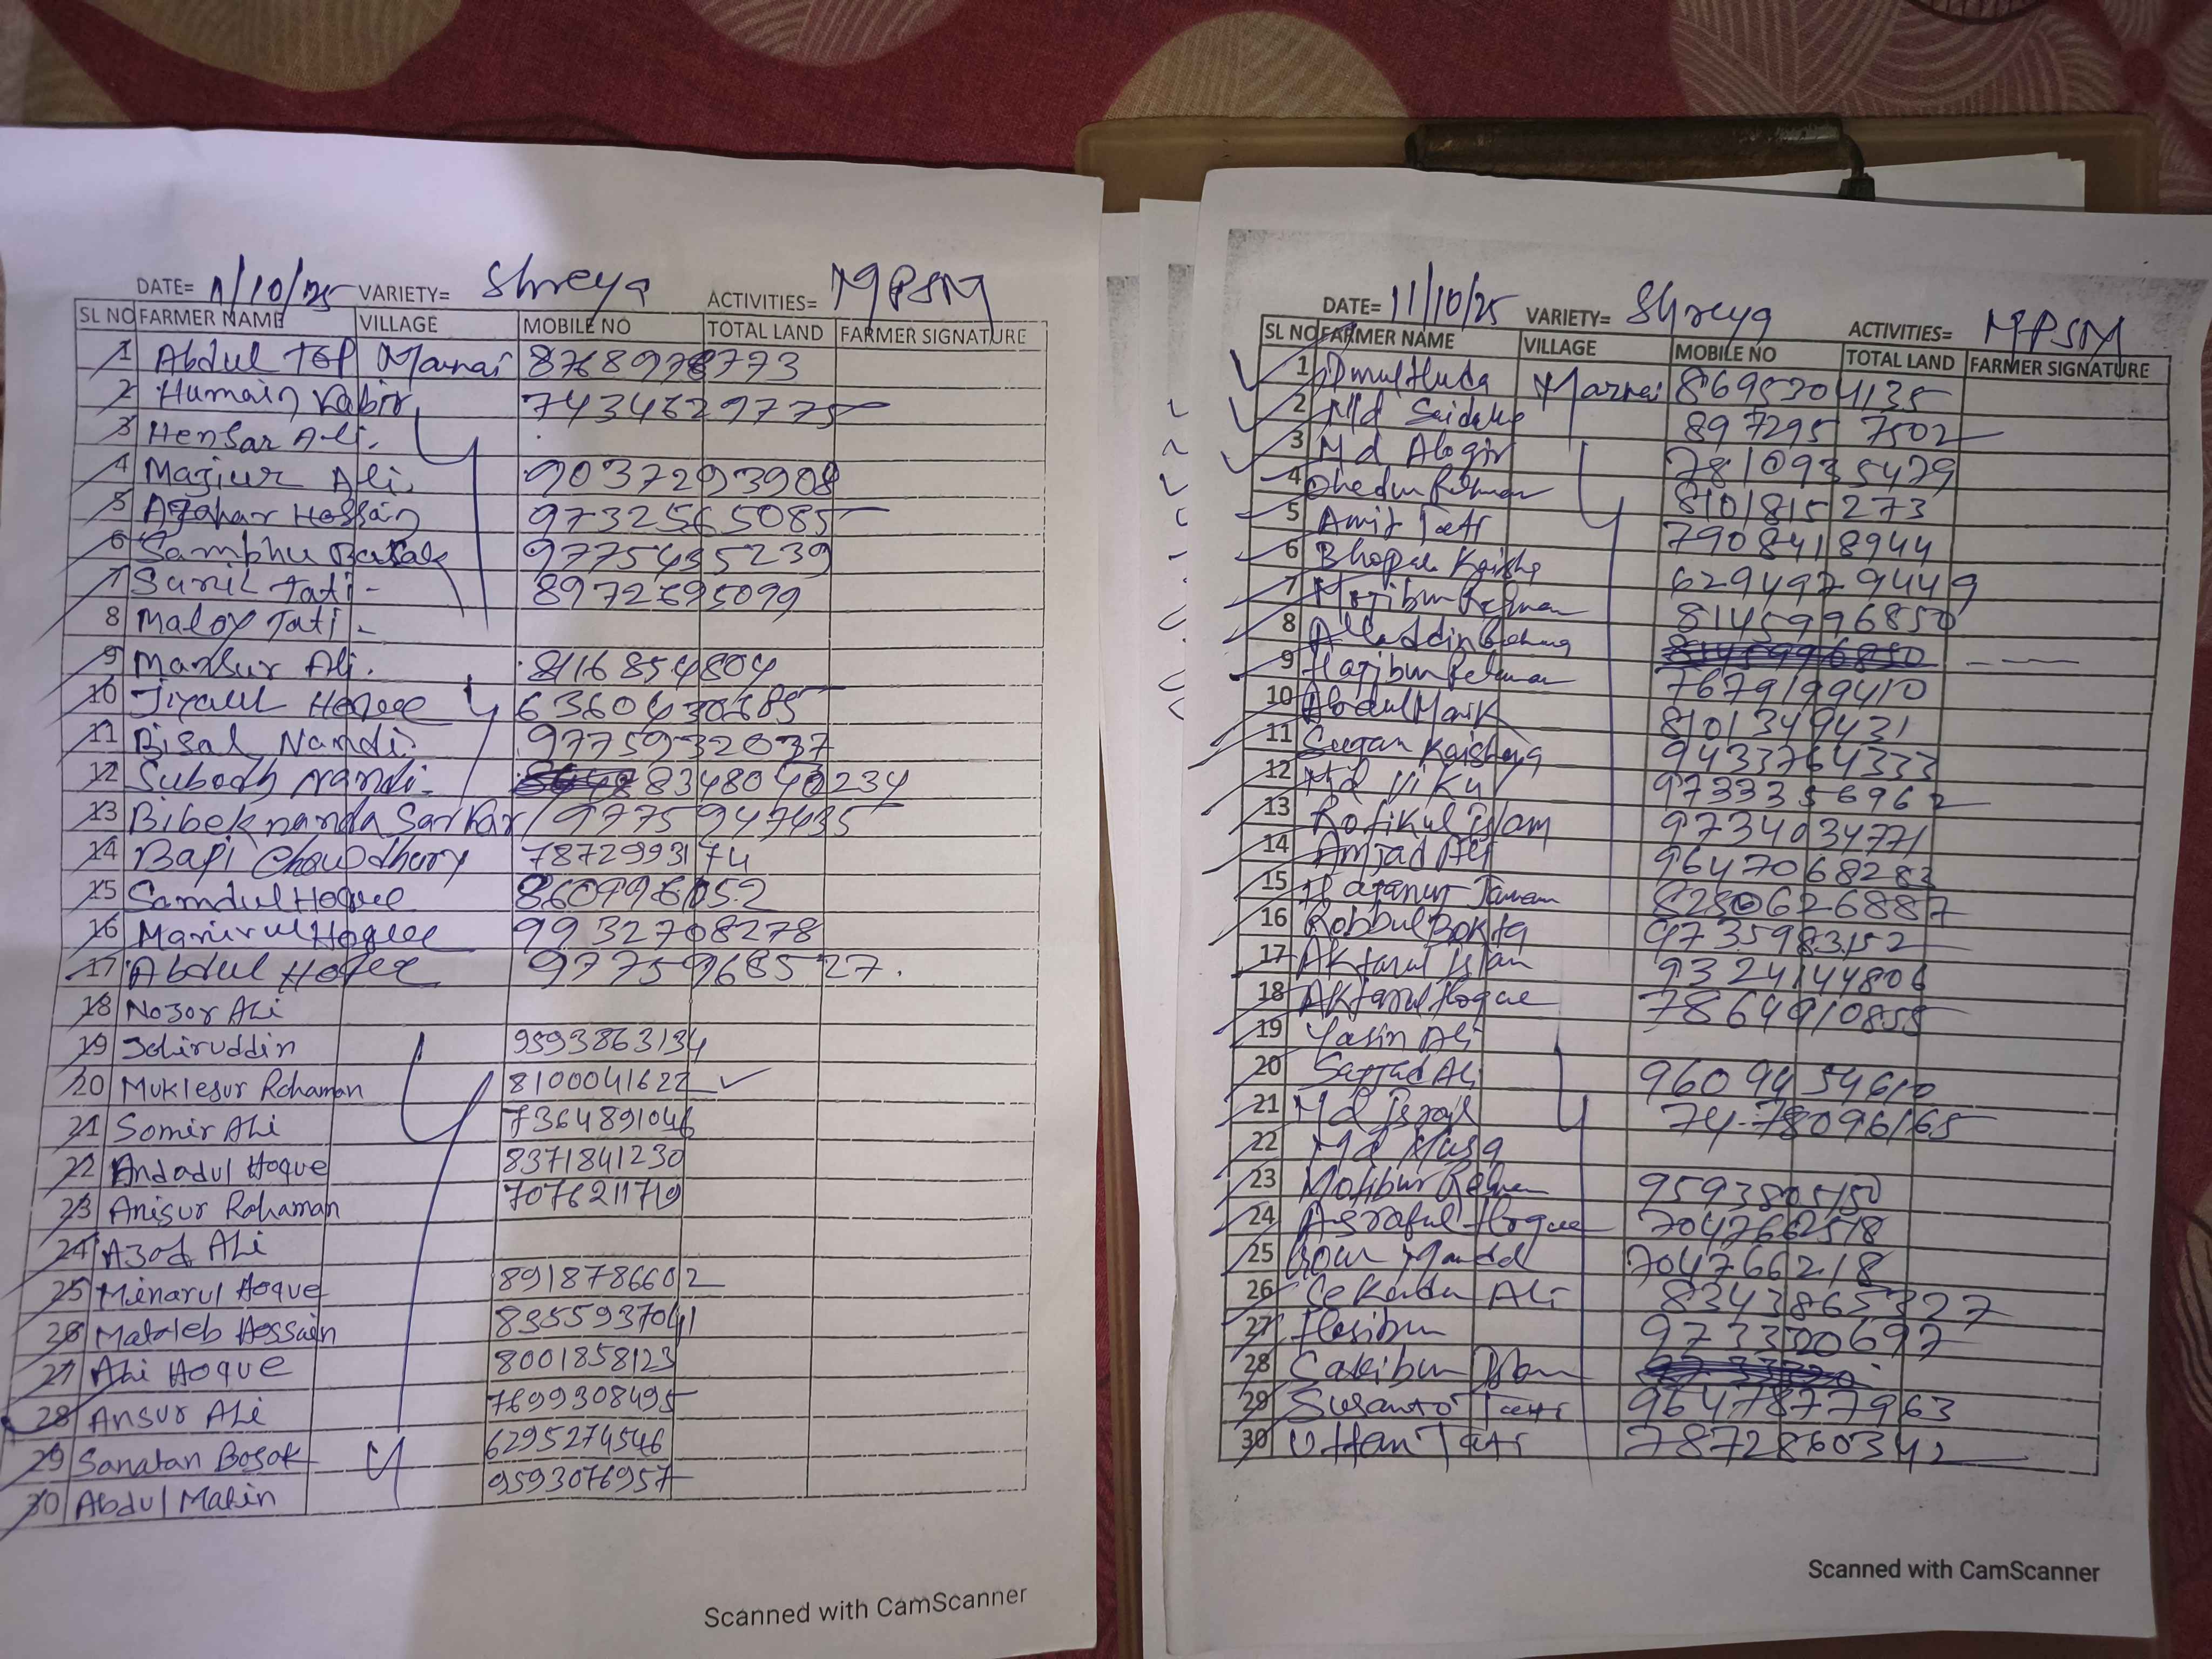 DATE= 11/10/25 VARIETY= Shreya ACTIVITIES= MPSM
SL NO FARMER NAME VILLAGE MOBILE NO TOTAL LAND FARMER SIGNATURE
1 Abdul Marnai 8768978773
2 Humain Kabir 7434629775
3 Hensar Ali.
4 Majiur Ali. 9037293908
5 Azahar Hossain 9732565085
6 Sambhu Basak 9775435239
7 Sunil Tati - 8972695099
8 Maloy Tati -
9 Mansur Ali. 8116854804
10 Jiyaul Hoque
11 Bisal Nandi. 9775932037
12 Subodh Nandi - 8348040234
13 Bibeknanda Sarkar 9775947435
14 Bapi Choudhury 7872993174
15 Samdul Hoque 8609961052
16 Manirul Hoque 9932708278
17 Abdul 9775968527.
18 Nozor Ali
19 Joliruddin 9593863134
20 Muklesur Rohaman 8100041622
21 Somir Ali 7364891046
22 Andadul Hoque 8371841230
23 Anisur Rohaman 7076211719
24 Azad Ali
25 Minarul Hoque 8918786602
26 Mataleb Hossain 8355937041
27 Ali Hoque 8001858123
28 Ansur Ali 7699308495
29 Sanatan Bosak 6295274546
30 Abdul Matin 9593076957
Scanned with CamScanner
DATE= 11/10/25 VARIETY= Shreya ACTIVITIES= MPSM
SL NO FARMER NAME VILLAGE MOBILE NO TOTAL LAND FARMER SIGNATURE
1 Marnai 8695304135
2 Md 8972957502
3 Md Alogir 7810935479
4 8101815273
5 Amit Tati 7908418944
6 Bhopal 6294979449
7 Mojibur Rehman 8145996850
8 Alladdin
9 Hajibur Rehman 7679199410
10 Abdul 8101349431
11 9433764333
12 Md 9733356962
13 Rofikul Islam 9734034771
14 Amjad Ali 9647068283
15 8250626887
16 Robbul 9735983152
17 Aktarul Islam 9324144806
18 Aktarul Hoque 7864910855
19 Yasin Ali
20 Sajjad Ali 9609454610
21 Md 7478096165
22 Md Musa
23 Motibur Rehman 9593805150
24 Asraful Hoque 7047662518
25 7047662218
26 Ali 8343865327
27 Hasibur 973320697
28
29 Susanto Tati
30 Uttan Tati 7872860342
Scanned with CamScanner